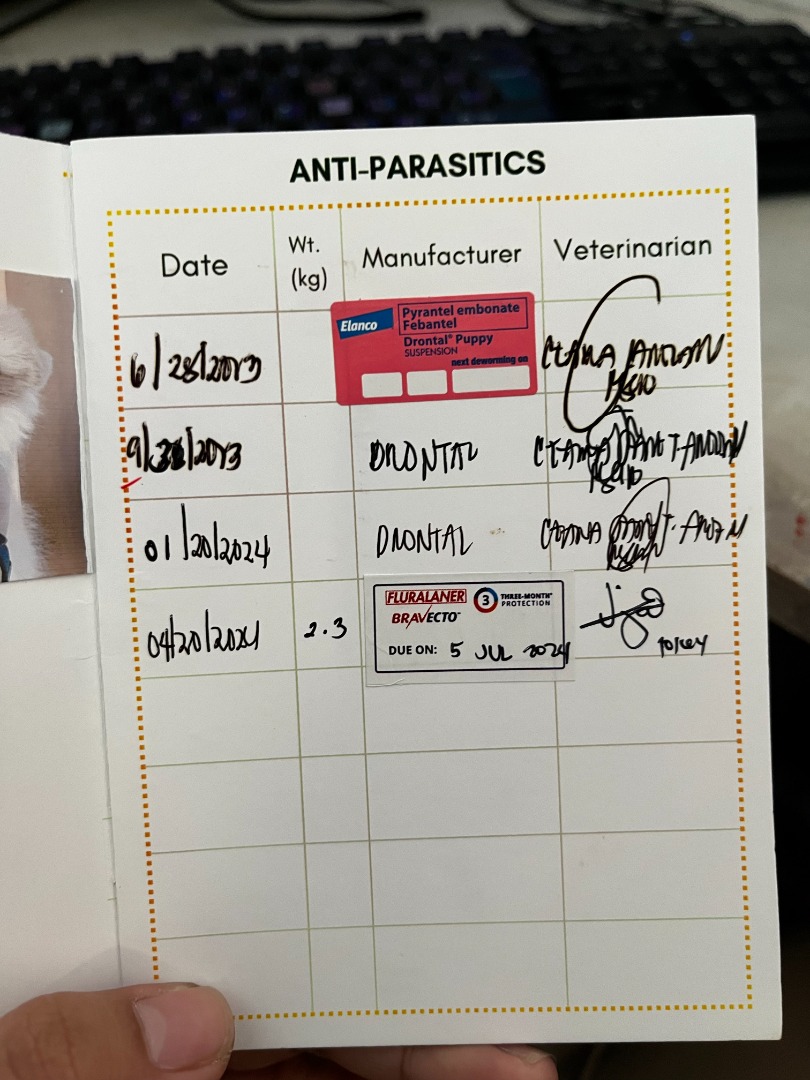 ANTI-PARASITICS
Date Wt. (kg) Manufacturer Veterinarian
Elanco
Pyrantel embonate
Febantel
Drontal® Puppy
SUSPENSION
next deworming on
6/28/2023
9/ /2023 DRONTAL
01/20/2024 DRONTAL
04/20/2024 2.3
FLURALANER 3 THREE-MONTH PROTECTION
BRAVECTO
DUE ON: 5 JUL 2024